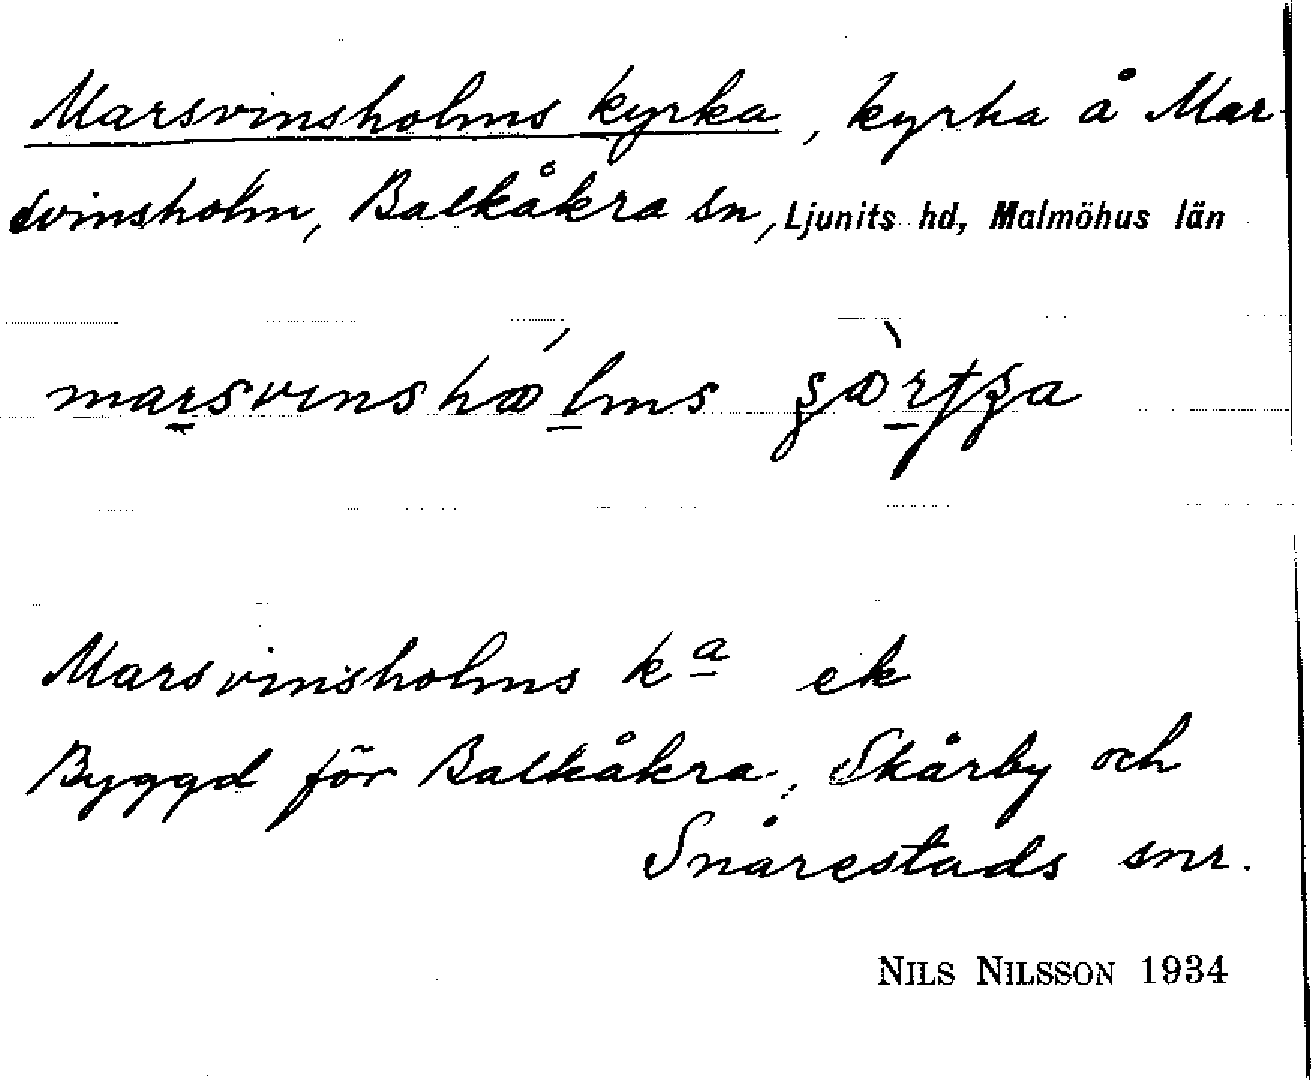 Marsvinsholms kyrka, kyrka å Mar-
svinsholm, Balkåkra sn, Ljunits hd, Malmöhus län
Marsvinsholms kª ek
Byggd för Balkåkra, Skårby och
Snårestads snr.
NILS NILSSON 1934